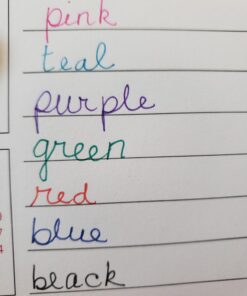 pink
teal
purple
green
red
blue
black